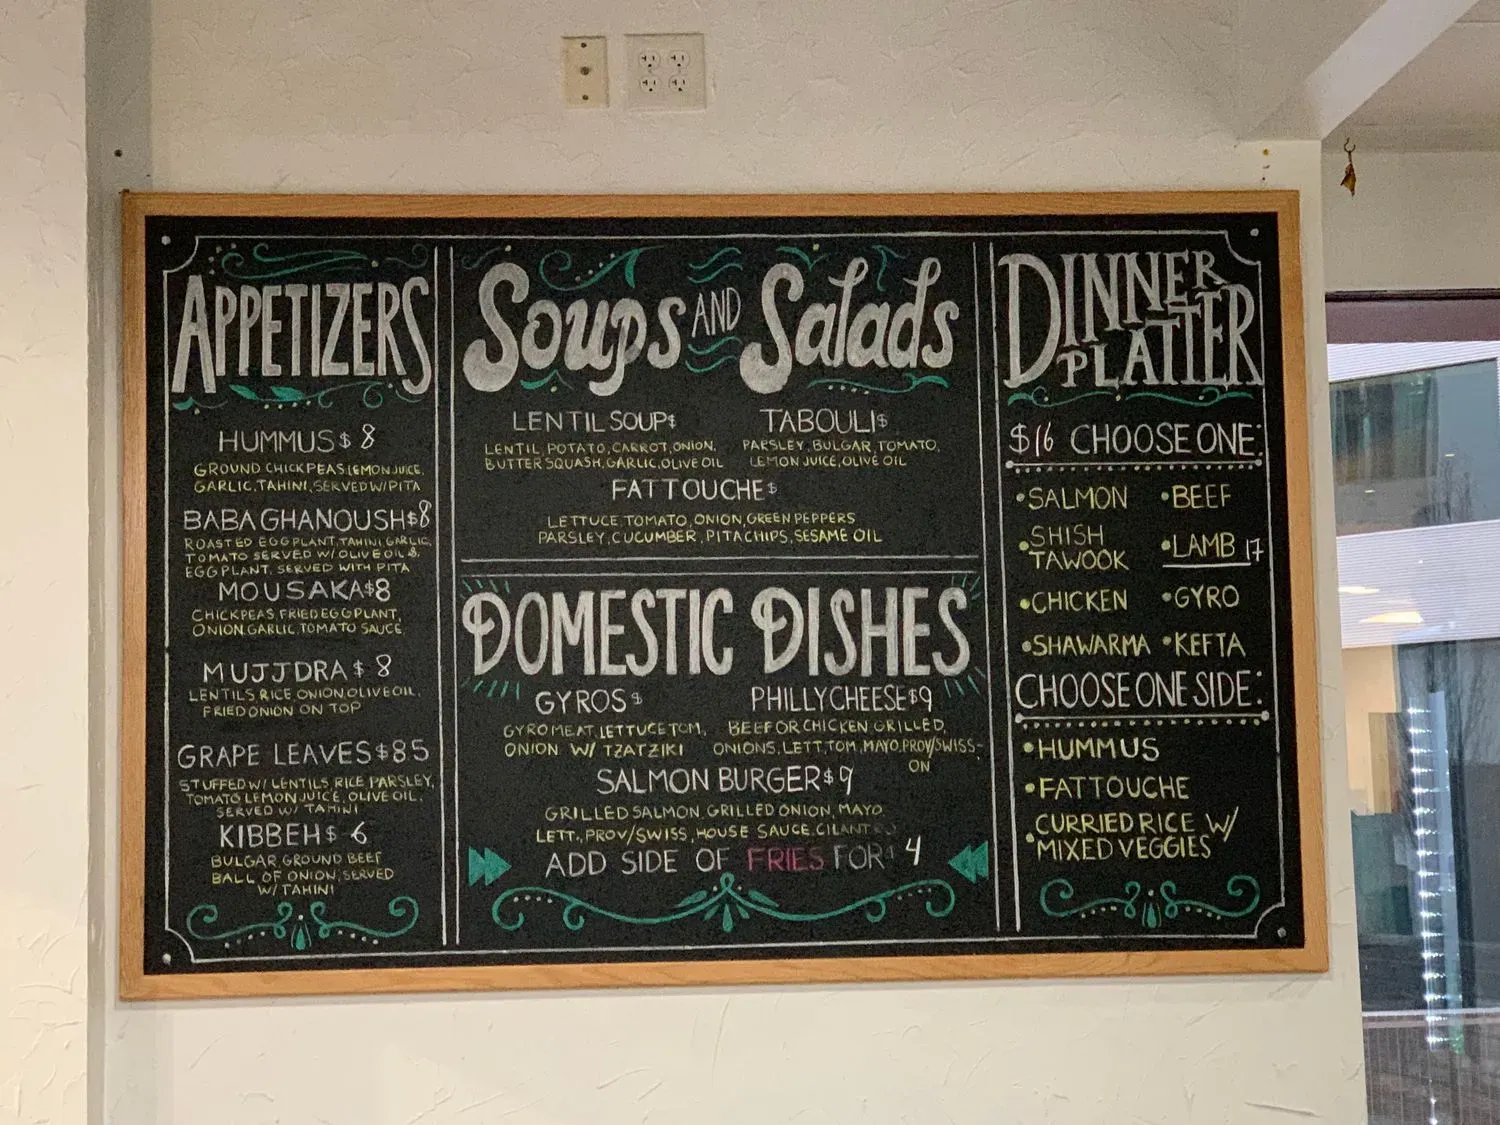 APPETIZERS
HUMMUS $ 8
GROUND CHICKPEAS, LEMON JUICE,
GARLIC, TAHINI, SERVED W/ PITA
BABA GHANOUSH $8
ROASTED EGGPLANT, TAHINI, GARLIC,
TOMATO SERVED W/ OLIVE OIL &
EGGPLANT, SERVED WITH PITA
MOUSAKA $8
CHICKPEAS, FRIED EGGPLANT,
ONION, GARLIC, TOMATO SAUCE
MUJJDRA $ 8
LENTILS, RICE ONION, OLIVE OIL,
FRIED ONION ON TOP
GRAPE LEAVES $85
STUFFED W/ LENTILS, RICE, PARSLEY,
TOMATO, LEMON JUICE, OLIVE OIL,
SERVED W/ TAHINI
KIBBEH $ 6
BULGAR, GROUND BEEF
BALL OF ONION, SERVED
W/ TAHINI
SOUPS AND SALADS
LENTIL SOUP $
LENTIL, POTATO, CARROT, ONION,
BUTTERSQUASH, GARLIC, OLIVE OIL
TABOULI $
PARSLEY, BULGAR, TOMATO,
LEMON JUICE, OLIVE OIL
FATTOUCHE $
LETTUCE, TOMATO, ONION, GREEN PEPPERS
PARSLEY, CUCUMBER, PITA CHIPS, SESAME OIL
DOMESTIC DISHES
GYROS $
GYRO MEAT, LETTUCE, TOM,
ONION W/ TZATZIKI
PHILLY CHEESE $9
BEEF OR CHICKEN GRILLED,
ONIONS, LETT, TOM, MAYO, PROV/SWISS-
ON
SALMON BURGER $ 9
GRILLED SALMON, GRILLED ONION, MAYO
LETT., PROV/SWISS, HOUSE SAUCE, CILANTRO
ADD SIDE OF FRIES FOR 4
DINNER
PLATTER
$16 CHOOSE ONE:
•SALMON •BEEF
•SHISH TAWOOK •LAMB 17
•CHICKEN •GYRO
•SHAWARMA •KEFTA
CHOOSE ONE SIDE:
•HUMMUS
•FATTOUCHE
•CURRIED RICE W/
MIXED VEGGIES